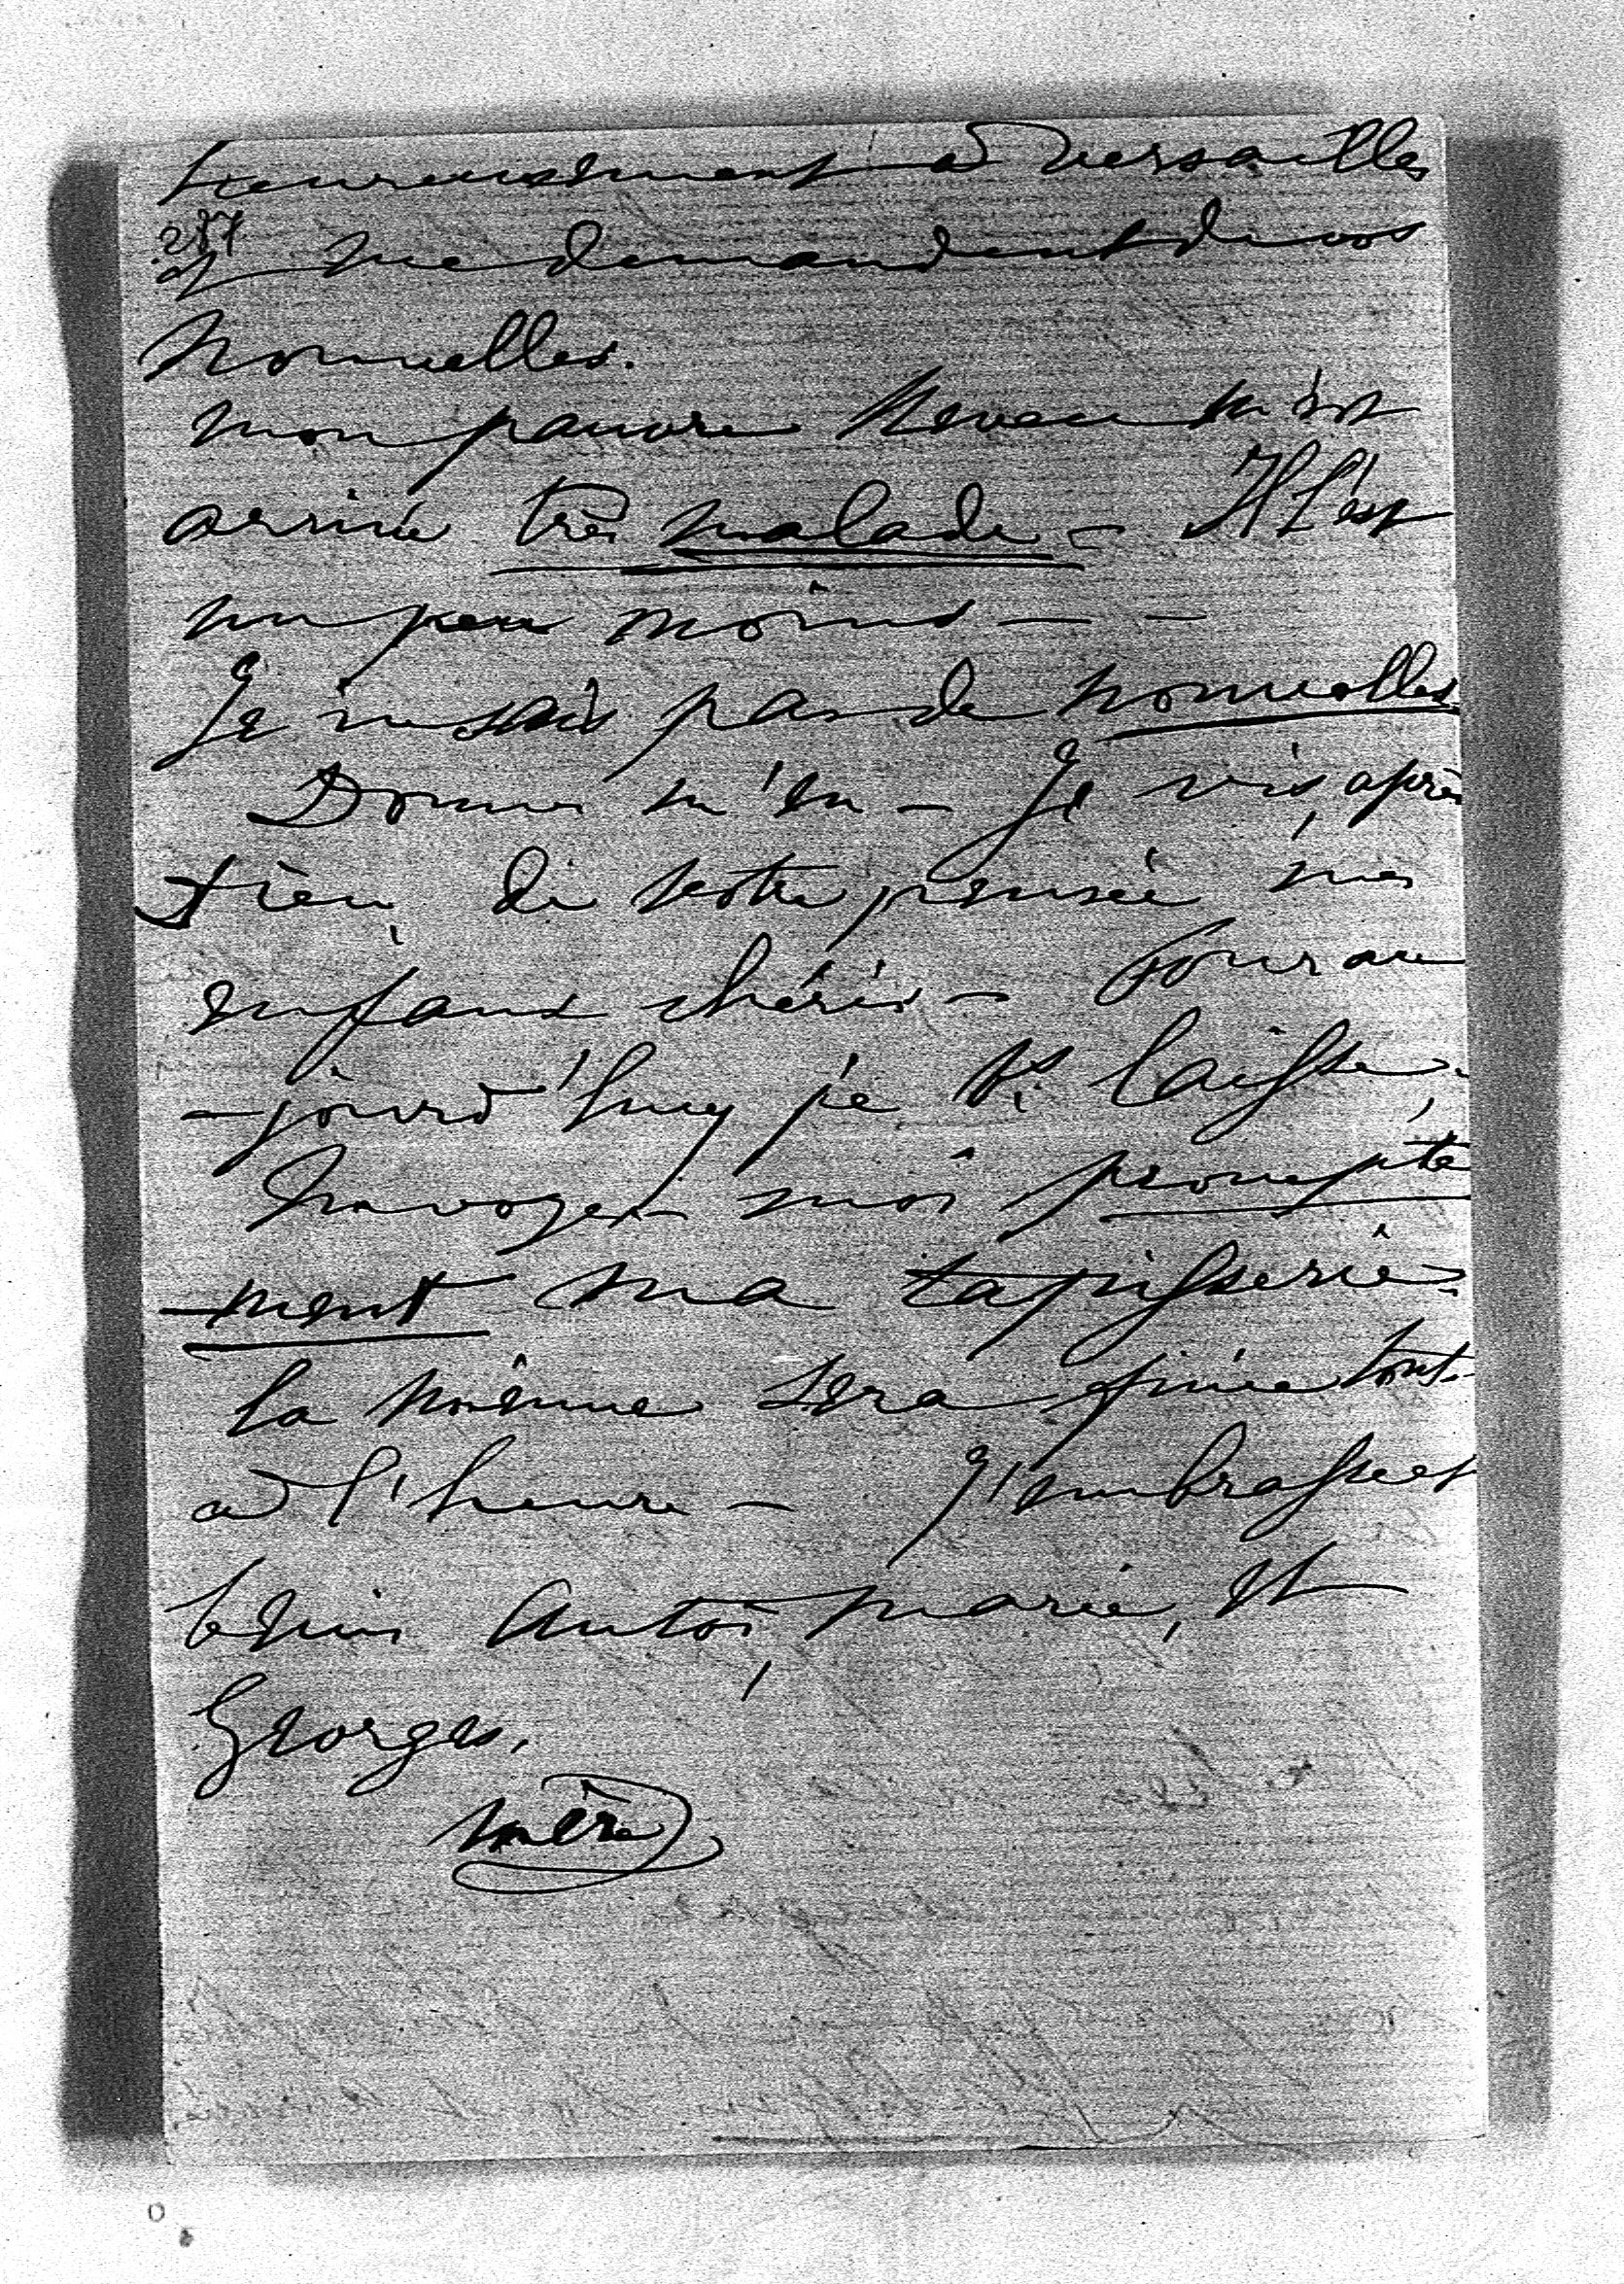 heureusement à Versailles
287
et me demandent de vos
nouvelles.
mon pauvre neveu m'est
arrivé très malade - Il l'est
un peu moins - -
Je ne sais pas de nouvelles
Donnez m'en - Je vis, après
Dieu, de votre pensée mes
enfans chéris - Pour au
-jourd'huy je vs laisse.
Envoyez moi prompte
-ment ma tapisserie -
la mienne sera finie tout-
à l'heure - J'embrasse et
bénis Antoi marie, et
Georges,
mère